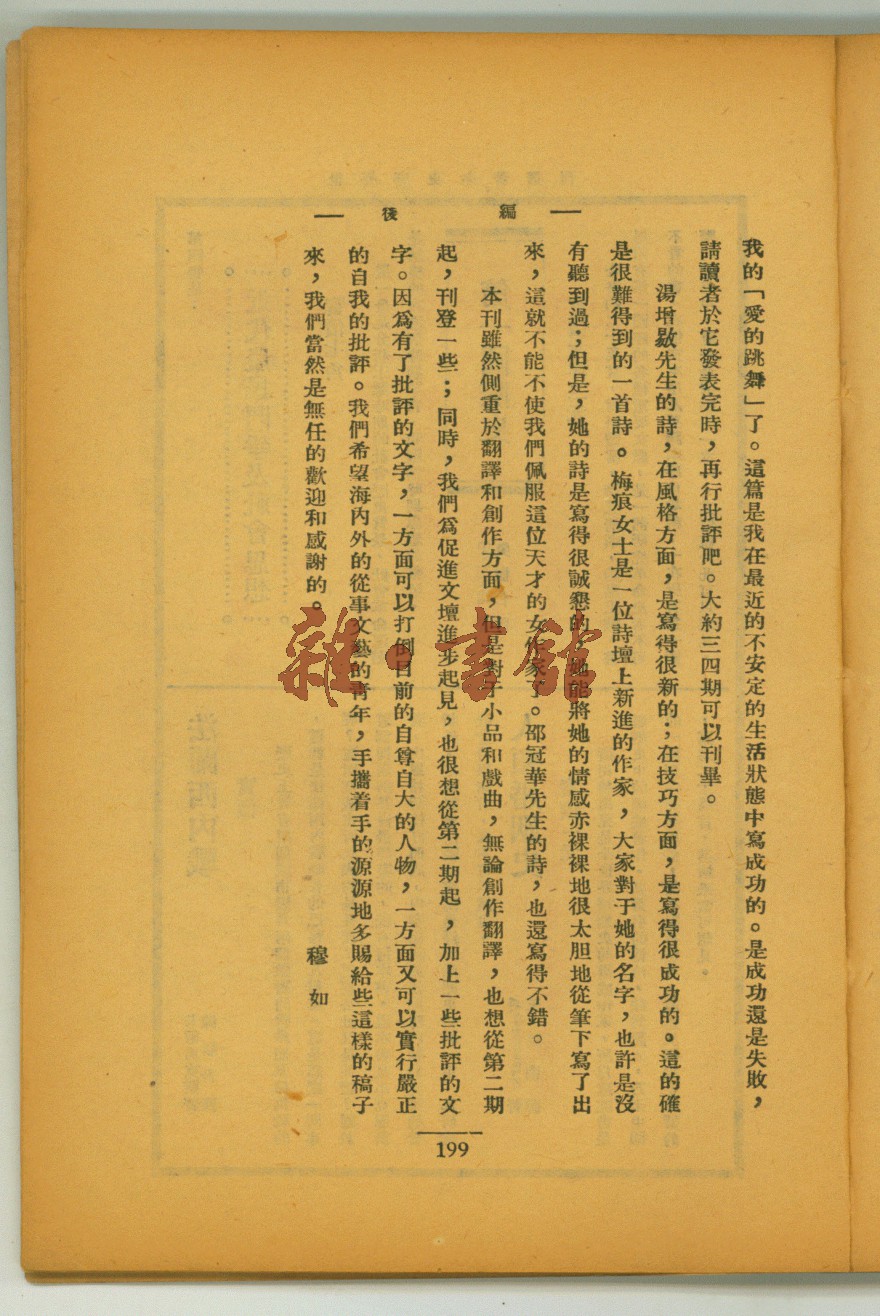 編後
我的「愛的跳舞」了。這篇是我在最近的不安定的生活狀態中寫成功的。是成功還是失敗，
請讀者於它發表完時，再行批評吧。大約三四期可以刊畢。
湯增敭先生的詩，在風格方面，是寫得很新的；在技巧方面，是寫得很成功的。這的確
是很難得到的一首詩。梅痕女士是一位詩壇上新進的作家，大家對于她的名字，也許是沒
有聽到過；但是，她的詩是寫得很誠懇的，她能將她的情感赤裸裸地很太胆地從筆下寫了出
來，這就不能不使我們佩服這位天才的女作家了。邵冠華先生的詩，也還寫得不錯。
本刊雖然側重於翻譯和創作方面，但是對于小品和戲曲，無論創作翻譯，也想從第二期
起，刊登一些；同時，我們爲促進文壇進步起見，也很想從第二期起，加上一些批評的文
字。因爲有了批評的文字，一方面可以打倒目前的自尊自大的人物，一方面又可以實行嚴正
的自我的批評。我們希望海內外的從事文藝的靑年，手攜着手的源源地多賜給些這樣的稿子
來，我們當然是無任的歡迎和感謝的。
穆如
199
雜·書館